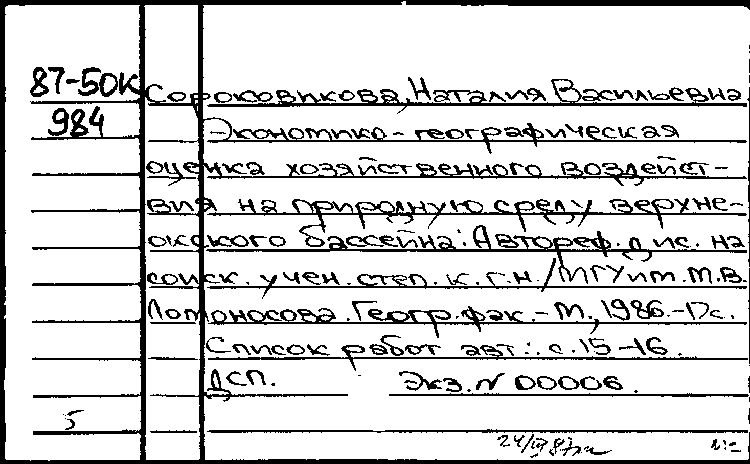 87-50к
984
Сороковикова, Наталия Васильевна
Экономико-географическая
оценка хозяйственного воздейст-
вия на природную среду верхне-
окского бассейна: Автореф. дис. на
соиск. учен. степ. к.г.н. / МГУ им. М.В.
Ломоносова. Геогр. фак. - М., 1986. - 17с.
Список работ авт.: с. 15-16.
ДСП. Экз. N 00006.
5